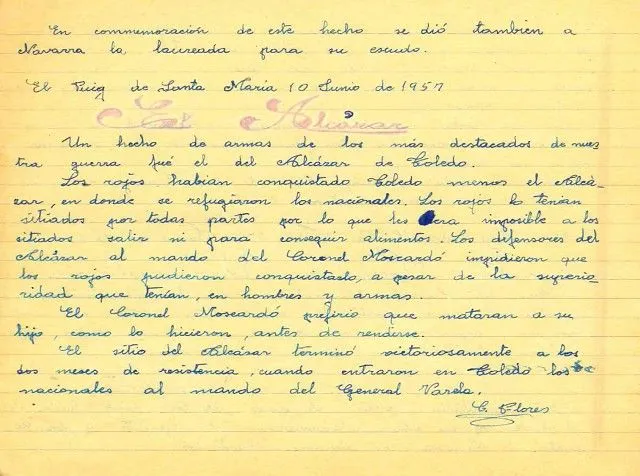 En commemoración de este hecho se dió tambien a
Navarra la laureada para su escudo.
El Puig de Santa María 10 Junio de 1957
El Alcázar
Un hecho de armas de los más destacados de nues
tra guerra fué el del Alcázar de Toledo.
Los rojos habian conquistado Toledo menos el Alcá-
zar, en donde se refugiaron los nacionales. Los rojos lo tenian
sitiados por todas partes por lo que les era imposible a los
sitiados salir ni para conseguir alimentos. Los defensores del
Alcázar al mando del Coronel Moscardó impidieron que
los rojos pudieron conquistarlo, a pesar de la superio-
ridad que tenían, en hombres y armas.
El Coronel Moscardó prefirio que mataran a su
hijo, como lo hicieron, antes de rendirse.
El sitio del Alcázar terminó victoriosamente a los
dos meses de resistencia, cuando entraron en Toledo los
nacionales al mando del General Varela.
C. Flores